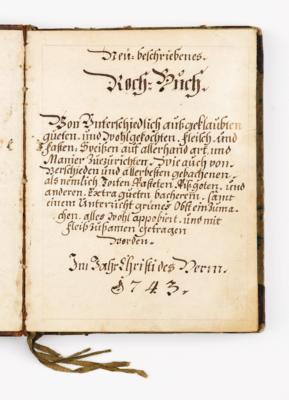 Neu-beschriebenes
Koch-Buch.
Von Unterschiedlich auß geklaubten
gueten, und Wohlgekochten, fleisch, und
fasten, Speißen auf allerhand art, und
Manier Zuezurichten, Wie auch von
Verschieden und allerbesten gebachenen,
als nemlich Torten Pasteten, und
anderen Extra gueten bacherein, samt
einem Unterricht grünes Obst einzuma-
chen, alles Wohl approbirt, und mit
fleiß zusamen getragen
Worden.
Im Jahr Christi des Herrn.
1743.